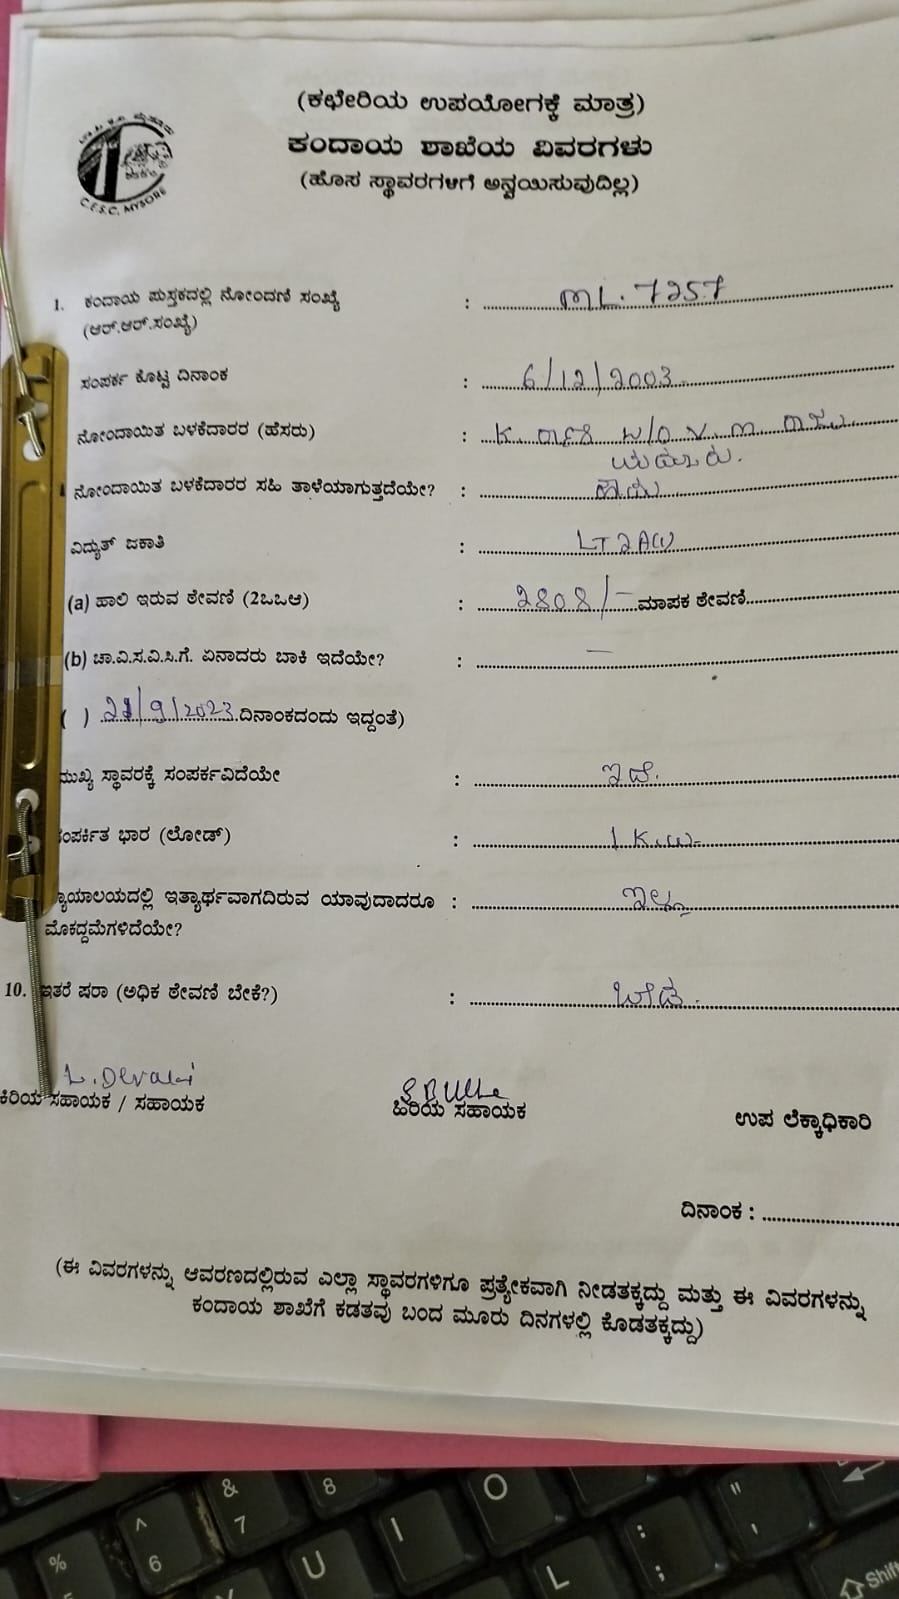 (ಕಛೇರಿಯ ಉಪಯೋಗಕ್ಕೆ ಮಾತ್ರ)
ಕಂದಾಯ ಶಾಖೆಯ ವಿವರಗಳು
(ಹೊಸ ಸ್ಥಾವರಗಳಿಗೆ ಅನ್ವಯಿಸುವುದಿಲ್ಲ)
C.E.S.C. MYSORE
1. ಕಂದಾಯ ಪುಸ್ತಕದಲ್ಲಿ ನೋಂದಣಿ ಸಂಖ್ಯೆ : ML. 7257
(ಆರ್.ಆರ್.ಸಂಖ್ಯೆ)
ಸಂಪರ್ಕ ಕೊಟ್ಟ ದಿನಾಂಕ : 6/12/2003
ನೋಂದಾಯಿತ ಬಳಕೆದಾರರ (ಹೆಸರು) : K. W/O V. M.
ನೋಂದಾಯಿತ ಬಳಕೆದಾರರ ಸಹಿ ತಾಳೆಯಾಗುತ್ತದೆಯೇ? : ಹೌದು
ವಿದ್ಯುತ್ ಜಕಾತಿ : LT2A(i)
(a) ಹಾಲಿ ಇರುವ ಠೇವಣಿ (2ಒಒಆ) : 2808/- ಮಾಪಕ ಠೇವಣಿ
(b) ಚಾ.ವಿ.ಸ.ವಿ.ಸಿ.ಗೆ. ಏನಾದರು ಬಾಕಿ ಇದೆಯೇ? : -
( ) 21/9/2023 ದಿನಾಂಕದಂದು ಇದ್ದಂತೆ)
ಮುಖ್ಯ ಸ್ಥಾವರಕ್ಕೆ ಸಂಪರ್ಕವಿದೆಯೇ : ಇದೆ.
ಸಂಪರ್ಕಿತ ಭಾರ (ಲೋಡ್) : 1 K.W.
ನ್ಯಾಯಾಲಯದಲ್ಲಿ ಇತ್ಯಾರ್ಥವಾಗದಿರುವ ಯಾವುದಾದರೂ : ಇಲ್ಲ
ಮೊಕದ್ದಮೆಗಳಿದೆಯೇ?
10. ಇತರೆ ಷರಾ (ಅಧಿಕ ಠೇವಣಿ ಬೇಕೆ?) : ಬೇಡ.
ಕಿರಿಯ ಸಹಾಯಕ / ಸಹಾಯಕ
ಹಿರಿಯ ಸಹಾಯಕ
ಉಪ ಲೆಕ್ಕಾಧಿಕಾರಿ
ದಿನಾಂಕ :
(ಈ ವಿವರಗಳನ್ನು ಆವರಣದಲ್ಲಿರುವ ಎಲ್ಲಾ ಸ್ಥಾವರಗಳಿಗೂ ಪ್ರತ್ಯೇಕವಾಗಿ ನೀಡತಕ್ಕದ್ದು ಮತ್ತು ಈ ವಿವರಗಳನ್ನು
ಕಂದಾಯ ಶಾಖೆಗೆ ಕಡತವು ಬಂದ ಮೂರು ದಿನಗಳಲ್ಲಿ ಕೊಡತಕ್ಕದ್ದು)
& 8 O
^ 7 I : "
% 6 U L ; ' Shift